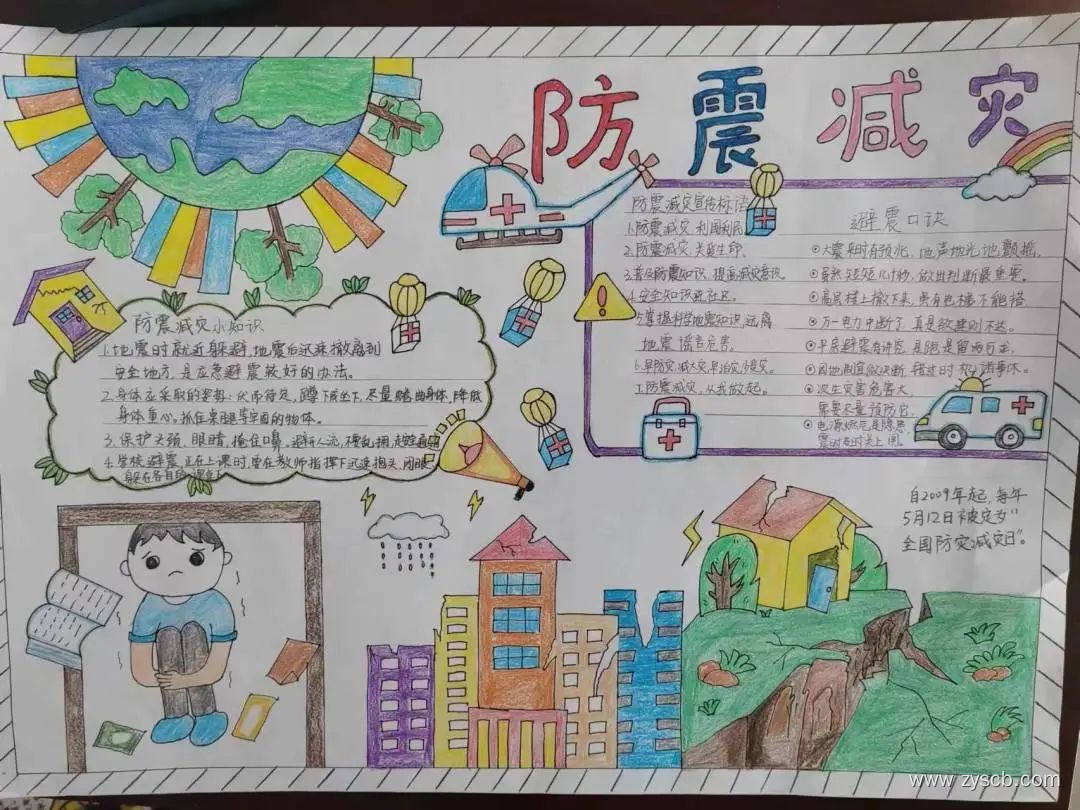 防震减灾
防震减灾宣传标语
1.防震减灾 利国利民
2.防震减灾,关爱生命.
3.普及防震知识,提高减灾意识.
4.安全知识进社区.
5.掌握科学地震知识,远离
地震谣言危害.
6.早防灾,减大灾,早治灾,少受灾.
7.防震减灾,从我做起。
避震口诀
大震来时有预兆,地声地光地颤摇,
虽然短短几十秒,做出判断最重要。
高层楼上撤下来,电梯不能搭
万一电力中断了,真是欲速则不达。
平房避震有讲究,是跑是留两可求,
因地制宜做决断,错过时机诸事休。
次生灾害危害大,
需要尽量预防它,
电源燃气是隐患
震时及时关上闸。
防震减灾小知识
1.地震时就近躲避,地震后迅速撤离到
安全地方,是应急避震较好的办法。
2.身体应采取的姿势:伏而待定,蹲下或坐下,尽量蜷曲身体,降低
身体重心。抓住桌腿等牢固的物体。
3.保护头颈、眼睛,掩住口鼻,避开人流,不要乱挤
4.学校避震:正在上课时,要在教师指挥下迅速抱头、闭眼
躲在各自的课桌下
自2009年起,每年
5月12日被定为"
全国防灾减灾日"。
www.zyscb.com